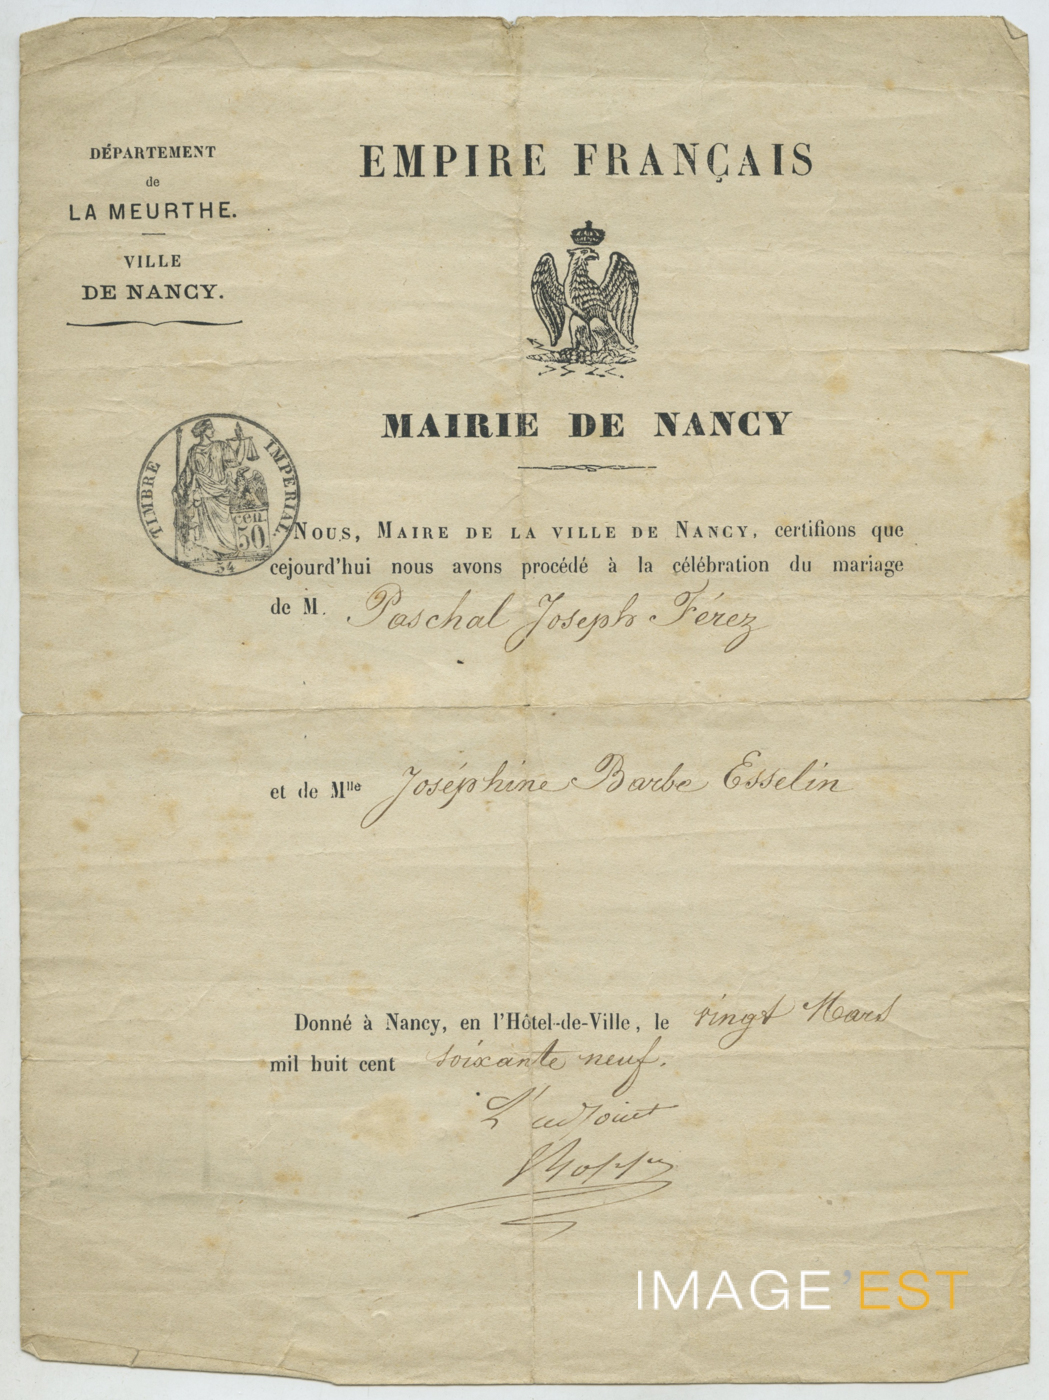 DÉPARTEMENT
de
LA MEURTHE.
VILLE
DE NANCY.
EMPIRE FRANÇAIS
MAIRIE DE NANCY
TIMBRE IMPERIAL.
cen.
50
54
Nous, Maire de la ville de Nancy, certifions que
cejourd'hui nous avons procédé à la célébration du mariage
de M. Paschal Joseph Férez
et de Mlle Joséphine Barbe Esselin
Donné à Nancy, en l'Hôtel-de-Ville, le vingt Mars
mil huit cent soixante neuf.
L'adjoint
IMAGE'EST